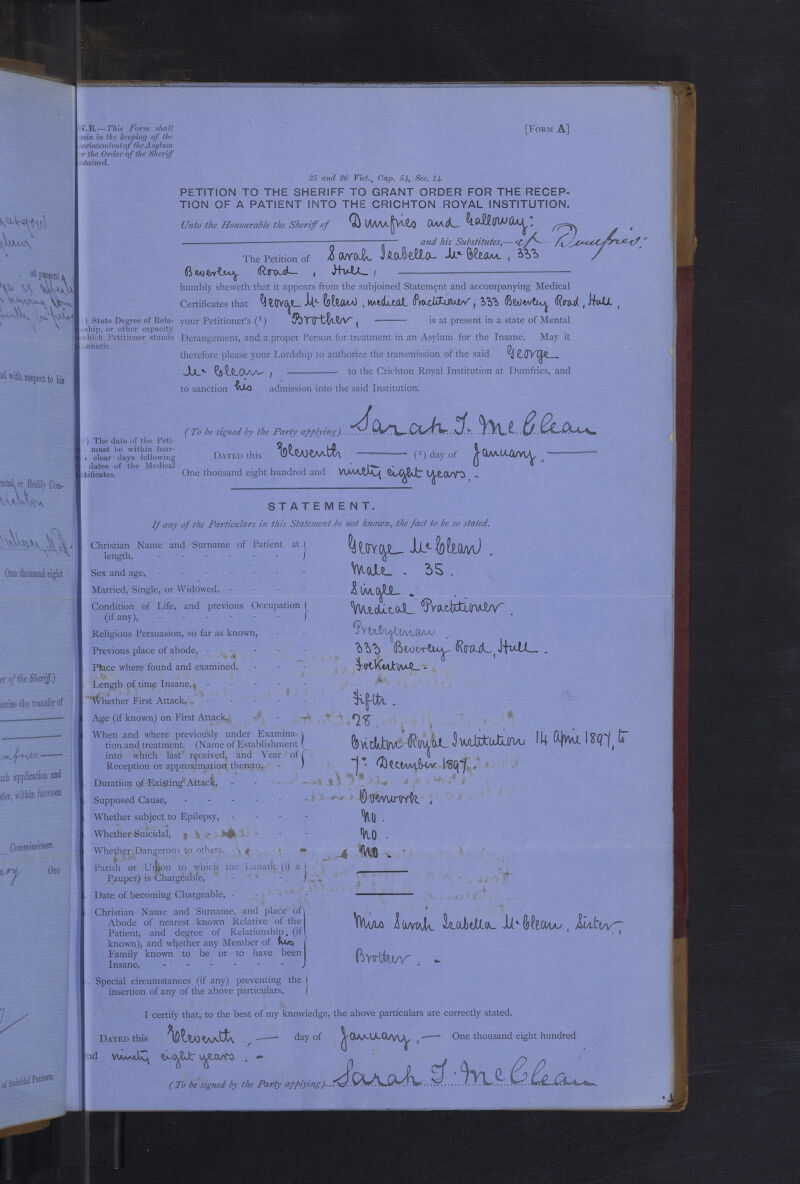 N.B.—This Form shall
in the keeping of the
erintendent of the Asylum
r the Order of the Sheriff
tained.
[FORM A]
25 and 26 Vict., Cap. 54, Sec. 14.
PETITION TO THE SHERIFF TO GRANT ORDER FOR THE RECEP-
TION OF A PATIENT INTO THE CRICHTON ROYAL INSTITUTION.
Unto the Honourable the Sheriff of Dumfries and Galloway;
and his Substitutes,— at Dumfries:
The Petition of Sarah Isabella McClean, 333
Beverley Road, Hull,
humbly sheweth that it appears from the subjoined Statement and accompanying Medical
Certificates that George McClean, medical Practitioner, 333 Beverley Road, Hull,
) State Degree of Rela-
ship, or other capacity
which Petitioner stands
unatic.
your Petitioner's (¹) Brother, is at present in a state of Mental
Derangement, and a proper Person for treatment in an Asylum for the Insane. May it
therefore please your Lordship to authorize the transmission of the said George
McClean, to the Crichton Royal Institution at Dumfries, and
to sanction his admission into the said Institution.
(To be signed by the Party applying) Sarah I. McClean
) The date of the Peti-
must be within four-
clear days following
dates of the Medical
tificates.
DATED this Eleventh (²) day of January,
One thousand eight hundred and ninety eight years.
STATEMENT.
If any of the Particulars in this Statement be not known, the fact to be so stated.
Christian Name and Surname of Patient at
length, George McClean.
Sex and age, Male. 35.
Married, Single, or Widowed, Single.
Condition of Life, and previous Occupation
(if any), Medical Practitioner.
Religious Persuasion, so far as known, Presbyterian
Previous place of abode, 333 Beverley Road, Hull.
Place where found and examined,
Length of time Insane,
Whether First Attack, Fifth.
Age (if known) on First Attack, 28
When and where previously under Examina-
tion and treatment. (Name of Establishment
into which last received, and Year of
Reception or approximation thereto, Crichton Royal Institution 14 April 1897, to
7th December 1897.
Duration of Existing Attack,
Supposed Cause, Overwork.
Whether subject to Epilepsy, No.
Whether Suicidal, No.
Whether Dangerous to others, No.
Parish or Union to which the Lunatic (if a
Pauper) is Chargeable,
Date of becoming Chargeable,
Christian Name and Surname, and place of
Abode of nearest known Relative of the
Patient, and degree of Relationship, (if
known), and whether any Member of his
Family known to be or to have been
Insane, Miss Sarah Isabella McClean, Sister,
Brother.
Special circumstances (if any) preventing the
insertion of any of the above particulars,
I certify that, to the best of my knowledge, the above particulars are correctly stated.
DATED this Eleventh, day of January, One thousand eight hundred
nd ninety eight years.
(To be signed by the Party applying) Sarah I. McClean
at present
nd with respect to his
ental, or Bodily Con-
One thousand eight
er of the Sheriff.)
horize the transfer of
ch application and
sfer, within fourteen
Commissioner.
One
of Suicidal Patients.